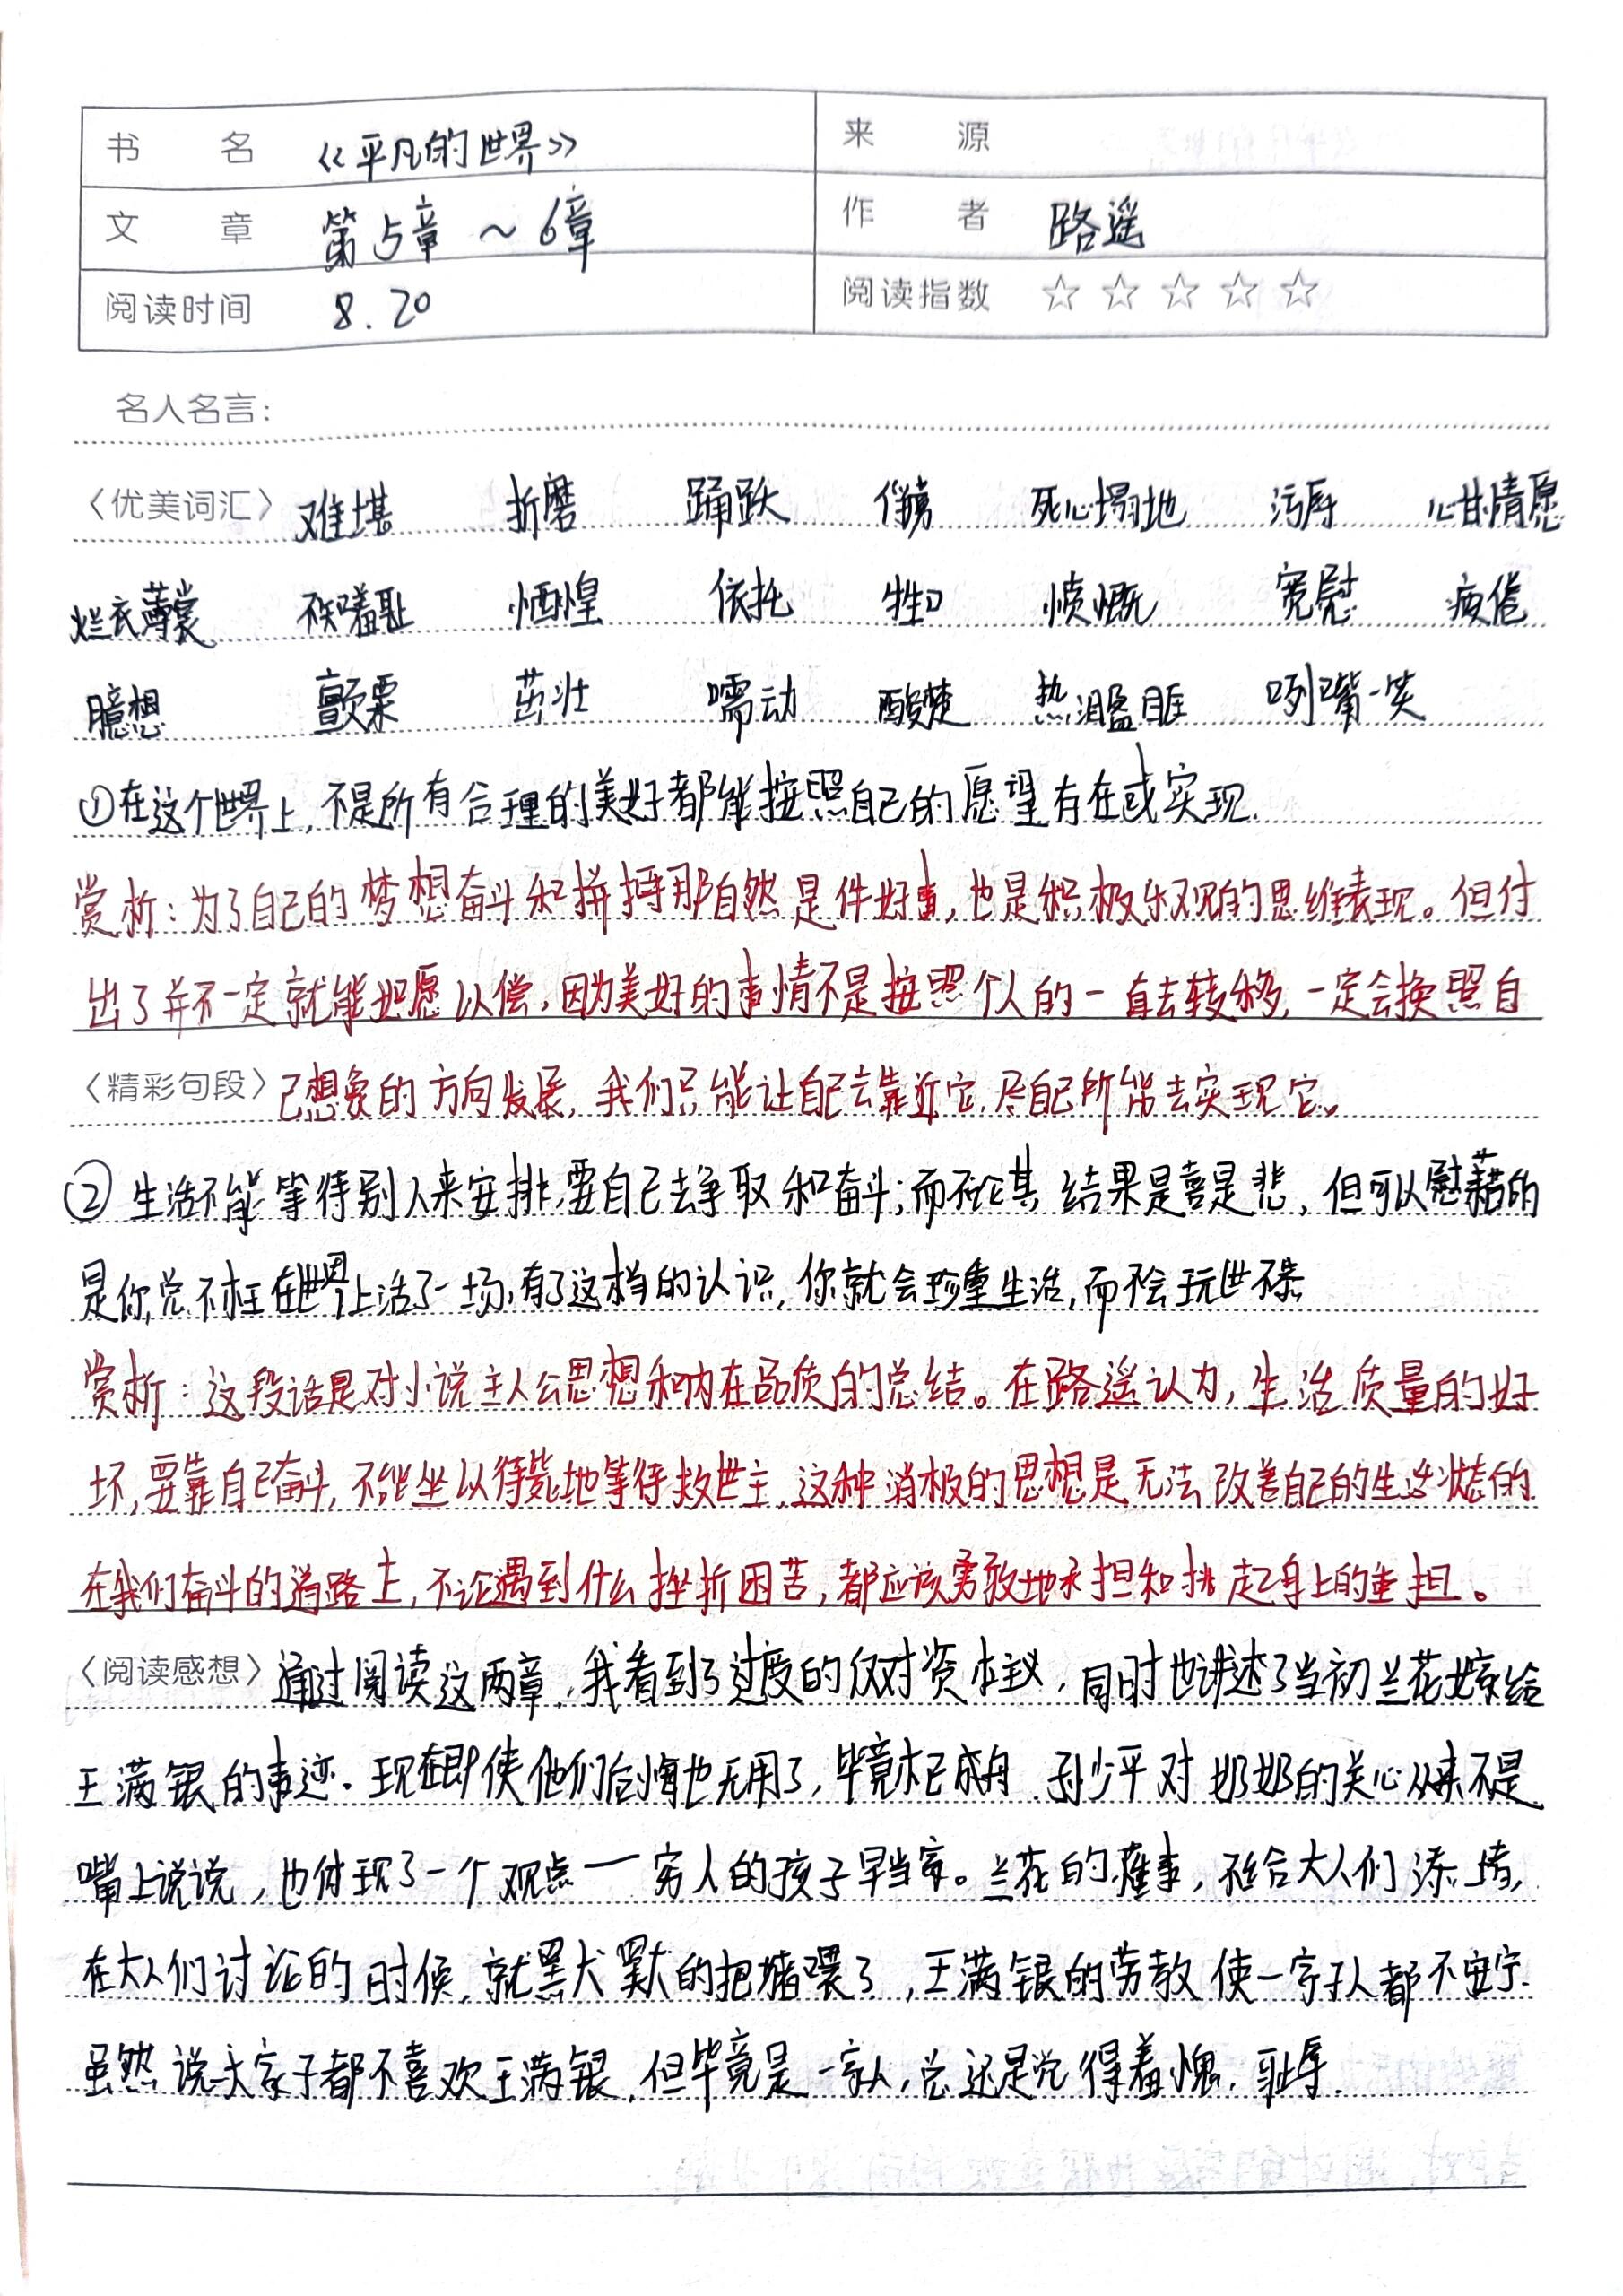 书 名 《平凡的世界》 来 源
文 章 第5章~6章 作 者 路遥
阅读时间 8.20 阅读指数 ☆☆☆☆☆
名人名言:
〈优美词汇〉难堪 折磨 踊跃 死心塌地 污辱 心甘情愿
烂衣薄裳 不知羞耻 恓惶 依托 牲口 愤慨 宽慰 疲倦
臆想 颤栗 茁壮 嚅动 酸楚 热泪盈眶 咧嘴一笑
①在这个世界上,不是所有合理的美好都能按照自己的愿望存在或实现.
赏析:为了自己的梦想奋斗和拼搏那自然是件好事,也是积极乐观的思维表现。但付
出了并不一定就能如愿以偿,因为美好的事情不是按照个人的一直去转移,一定会换照自
〈精彩句段〉己想象的方向发展,我们只能让自己去靠近它,尽自己所能去实现它。
②生活不能等待别人来安排,要自己去争取和奋斗;而不论其结果是喜是悲,但可以慰藉的
是你总不枉在世界上活了一场,有了这样的认识,你就会珍重生活,而不会玩世不恭
赏析:这段话是对小说主人公思想和内在品质的总结。在路遥认为,生活质量的好
坏,要靠自己奋斗,不能坐以待毙地等待救世主,这种消极的思想是无法改善自己的生活状态的
在我们奋斗的道路上,不论遇到什么挫折困苦,都应该勇敢地承担和挑起身上的重担。
〈阅读感想〉通过阅读这两章,我看到了过度的反对资本主义,同时也讲述了当初兰花嫁给
王满银的事迹.现在即使他们后悔也无用了,毕竟木已成舟.孙少平对奶奶的关心从来不是
嘴上说说,也体现了一个观点一穷人的孩子早当家。兰花的懂事,不给大人们添堵,
在大人们讨论的时候,就默默的把猪喂了,王满银的劳教使一家子人都不安宁.
虽然说一大家子都不喜欢王满银,但毕竟是一家人,总还是觉得羞愧,耻辱.